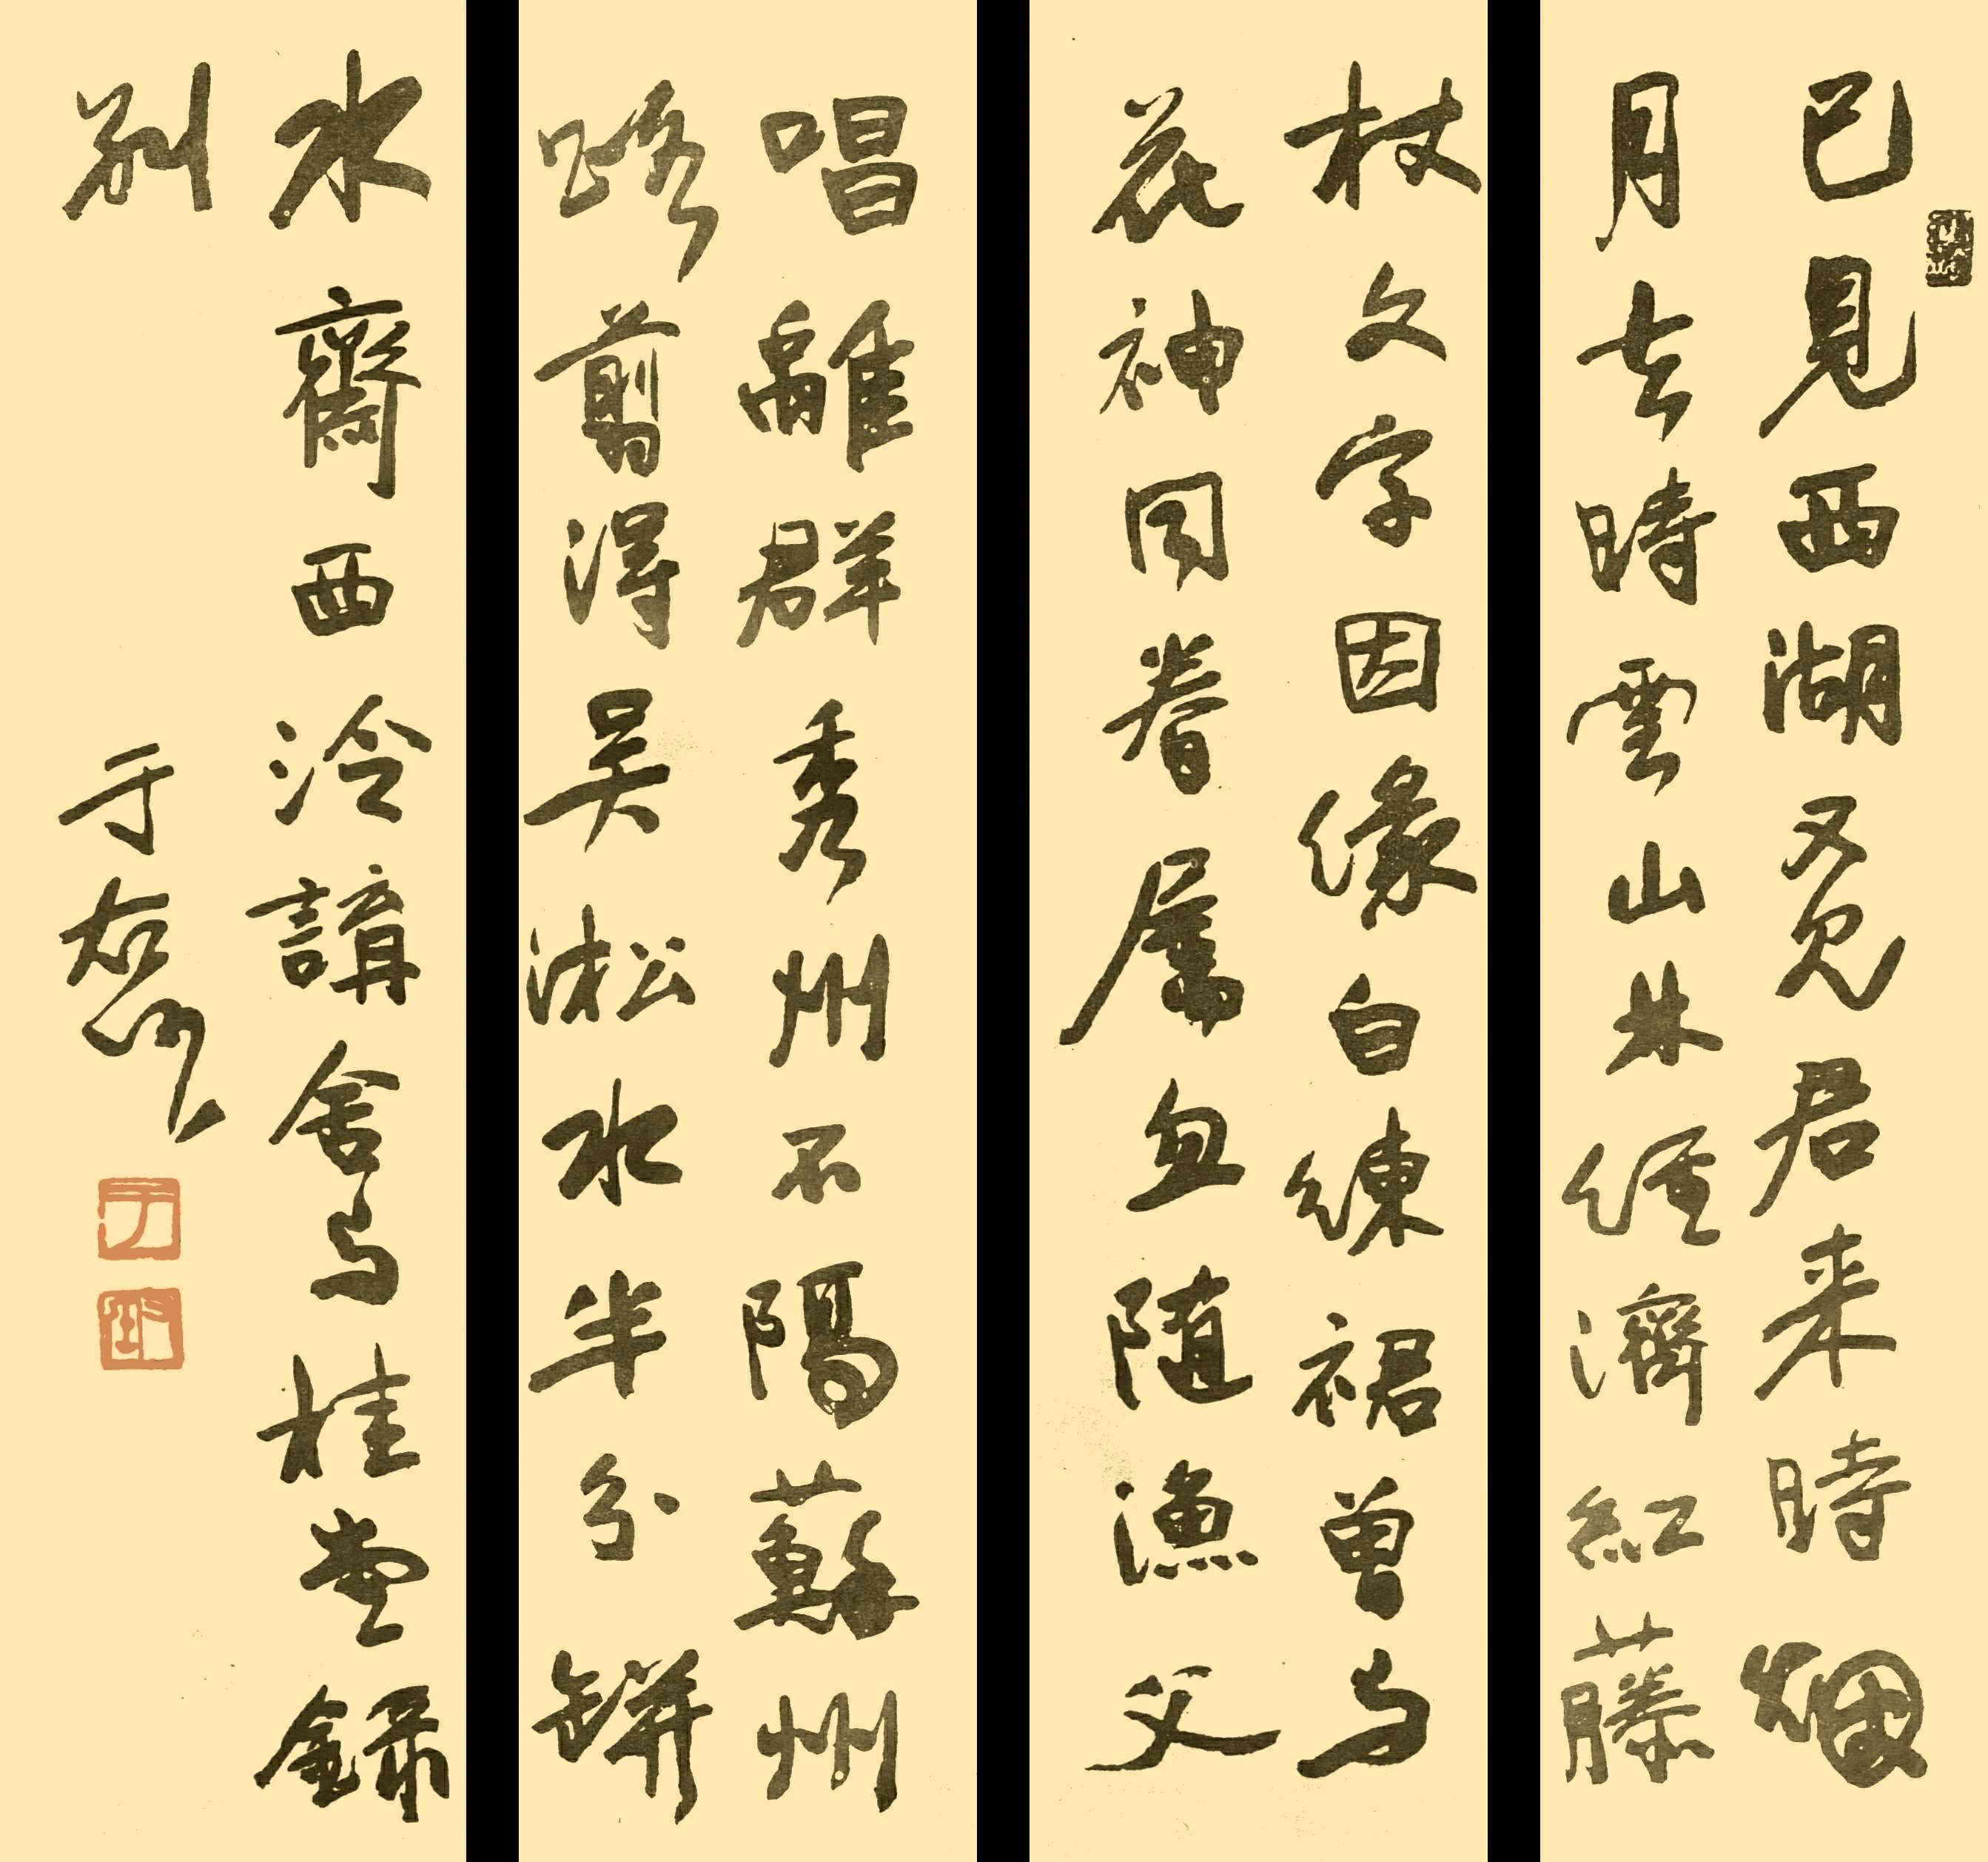 已見西湖又見君来時烟
月去時雲山林經濟紅藤
杖文字因緣白練裙曾与
花神同眷屬且随漁父
唱離群秀州不隔蘇州
路翦得吳淞水半分缾
水齋西泠講舍与桂堂錄
別
于右任